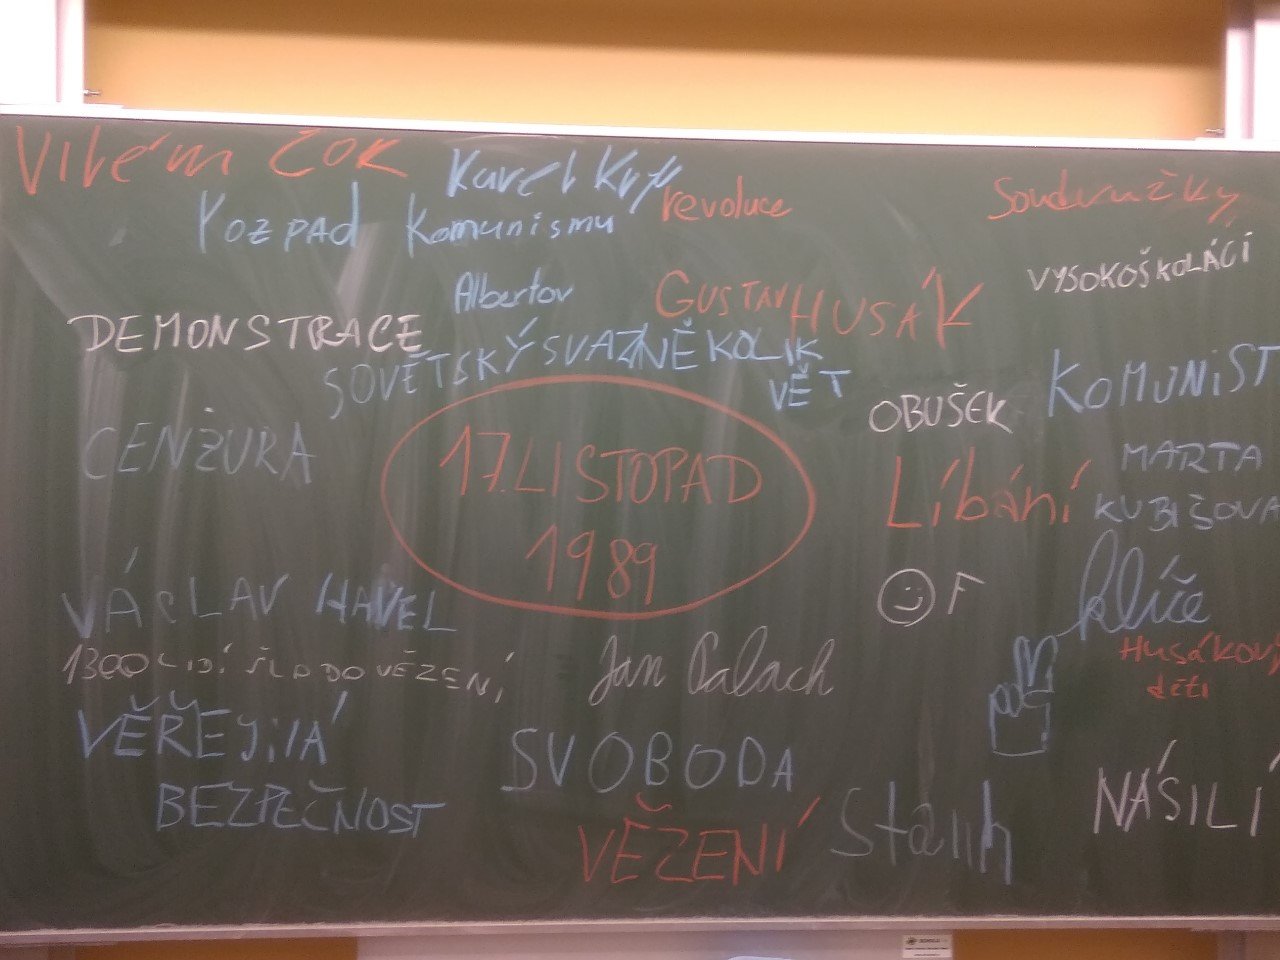 Vilém Čok
Karel Kryl
revoluce
Soudružky
rozpad komunismu
VYSOKOŠKOLÁCÍ
Albertov
GUSTAV HUSÁK
DEMONSTRACE
SOVĚTSKÝ SVAZ
NĚKOLIK
VĚT
KOMUNIST
OBUŠEK
CENZURA
17. LISTOPAD
1989
MARTA
KUBIŠOVA
Líbání
VÁCLAV HAVEL
OF
klíče
1300 LIDÍ ŠLO DO VĚZENÍ
Jan Palach
HUSÁKOVY
děti
VĚŘEJNÁ
BEZPEČNOST
SVOBODA
NÁSILÍ
VĚZENÍ